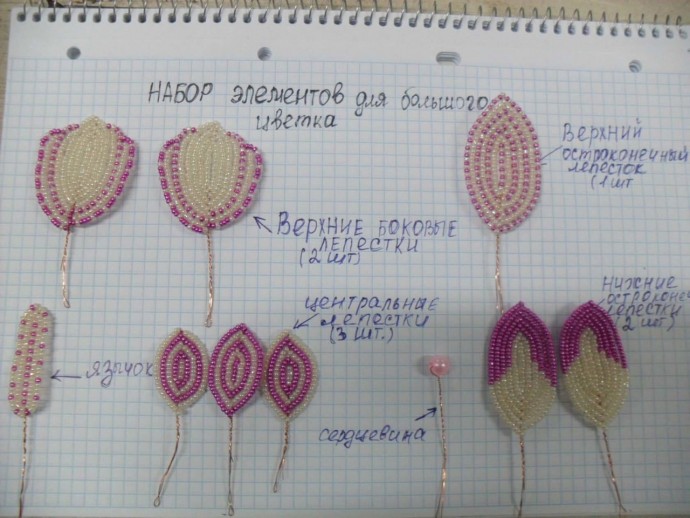 НАБОР элементов для большого
цветка
Верхний
остроконечный
лепесток
(1 шт
Верхние боковые
лепестки
(2 шт)
нижние
остроконе
лепестки
(2 шт.)
центральные
лепестки
(3 шт.)
язычок
сердцевина